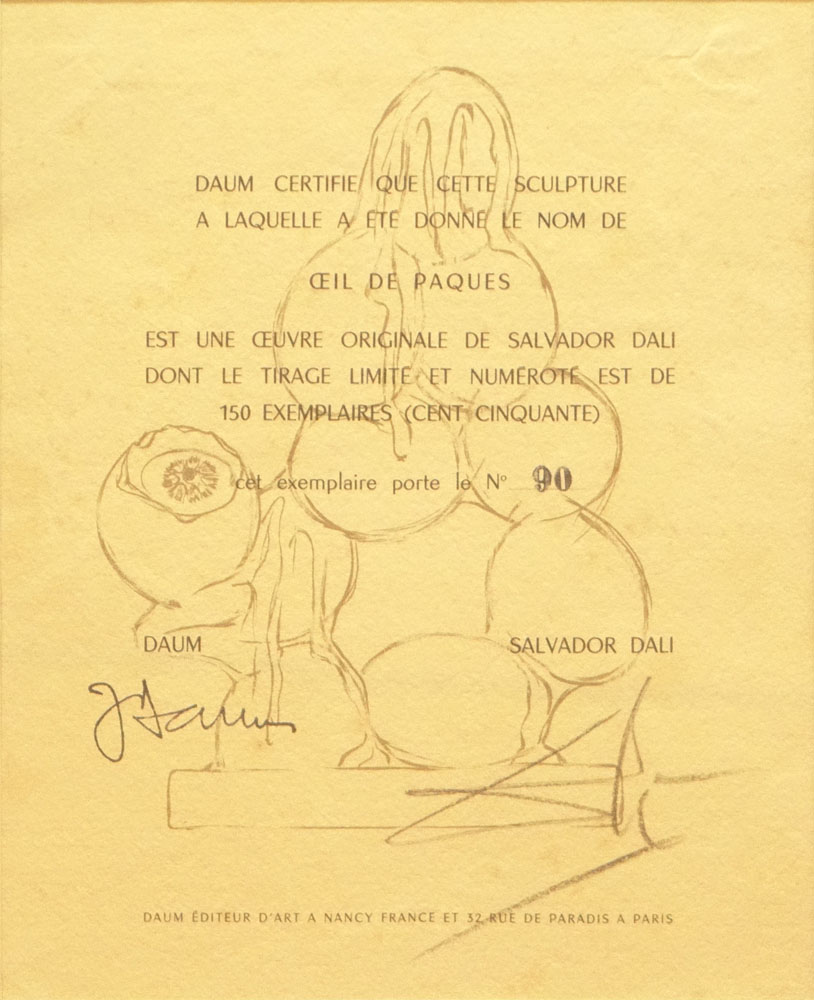 DAUM CERTIFIE QUE CETTE SCULPTURE
A LAQUELLE A ÉTÉ DONNÉ LE NOM DE
ŒIL DE PAQUES
EST UNE ŒUVRE ORIGINALE DE SALVADOR DALI
DONT LE TIRAGE LIMITÉ ET NUMÉROTÉ EST DE
150 EXEMPLAIRES (CENT CINQUANTE)
cet exemplaire porte le Nº 90
DAUM SALVADOR DALI
J Daum
DAUM ÉDITEUR D'ART A NANCY FRANCE ET 32, RUE DE PARADIS A PARIS